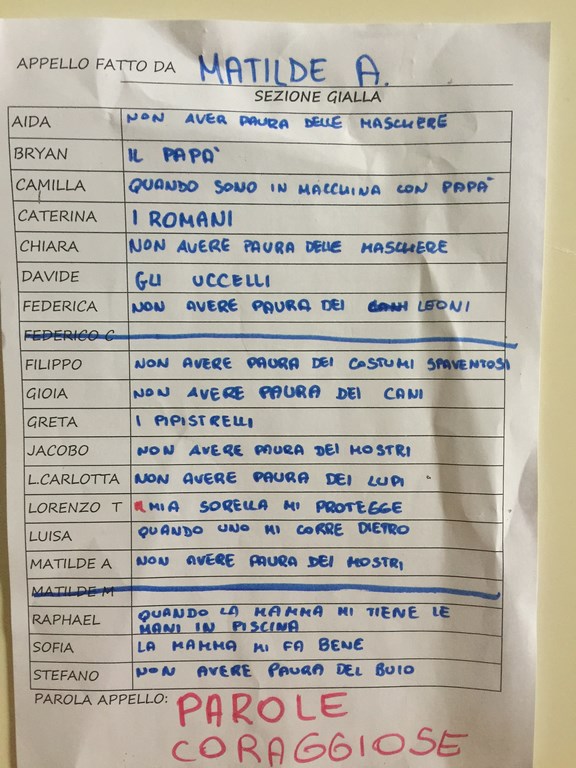 APPELLO FATTO DA MATILDE A.
SEZIONE GIALLA
AIDA NON AVER PAURA DELLE MASCHERE
BRYAN IL PAPA'
CAMILLA QUANDO SONO IN MACCHINA CON PAPA'
CATERINA I ROMANI
CHIARA NON AVERE PAURA DELLE MASCHERE
DAVIDE GLI UCCELLI
FEDERICA NON AVERE PAURA DEI CANI LEONI
FEDERICO C
FILIPPO NON AVERE PAURA DEI COSTUMI SPAVENTOSI
GIOIA NON AVERE PAURA DEI CANI
GRETA I PIPISTRELLI
JACOBO NON AVERE PAURA DEI MOSTRI
L.CARLOTTA NON AVERE PAURA DEI LUPI
LORENZO T MIA SORELLA MI PROTEGGE
LUISA QUANDO UNO MI CORRE DIETRO
MATILDE A NON AVERE PAURA DEI MOSTRI
MATILDE M
RAPHAEL QUANDO LA MAMMA MI TIENE LE
MANI IN PISCINA
SOFIA LA MAMMA MI FA BENE
STEFANO NON AVERE PAURA DEL BUIO
PAROLA APPELLO: PAROLE
CORAGGIOSE